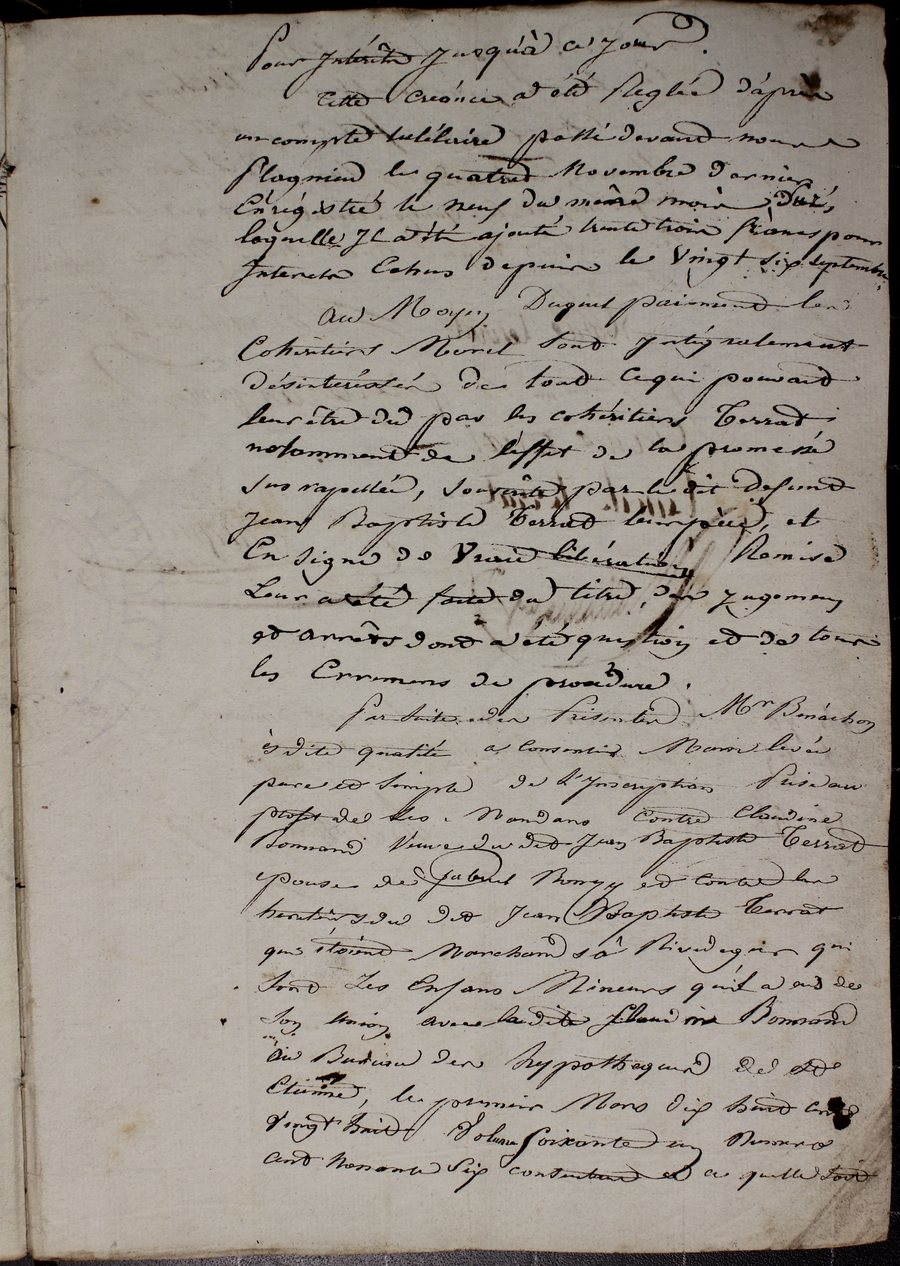 Pour Intérêts Jusqu'à ce jour.
Cette Créance a été Réglée d'après
un compte passé devant nous
Flagnieu le quatre Novembre dernier
Enrégistré le neuf du même mois,
laquelle Il a été ajouté trente trois francs pour
Interets Echus depuis le Vingt six septembre
au Moyen Duquel paiement les
Cohéritiers Morel sont Intégralement
désintéressés de tout ce qui pouvait
leur être du par les cohéritiers Terrat
notamment de l'effet de la promesse
sus rappellée, souscrite par le dit défunt
Jean Baptiste Terrat leur père, et
En Signe de Vraie libération Remise
Leur a été faite du titre, des Jugemens
et arrêts dont a été question et de tous
les Erremens de procédure.
Par suite des Présentes Mr Benachon
ès dite qualité a consentir Main levée
pure et simple de l'Inscription Prise au
profit de ses Mandans contre Claudine
Bonnand Veuve du dit Jean Baptiste Terrat
epouse de Gabriel Bonjy et contre les
heritiers du dit Jean Baptiste Terrat
qui étoient Marchand à Rivedegier qui
sont Les Enfans Mineurs qu'il a eu de
son union avec la dite Claudine Bonnand
au Bureau des hypotheques de St
Etienne, le premier Mars dix huit cent
Vingt huit Volume Soixante un Numero
cent nonante Six consentant à ce quelle soit